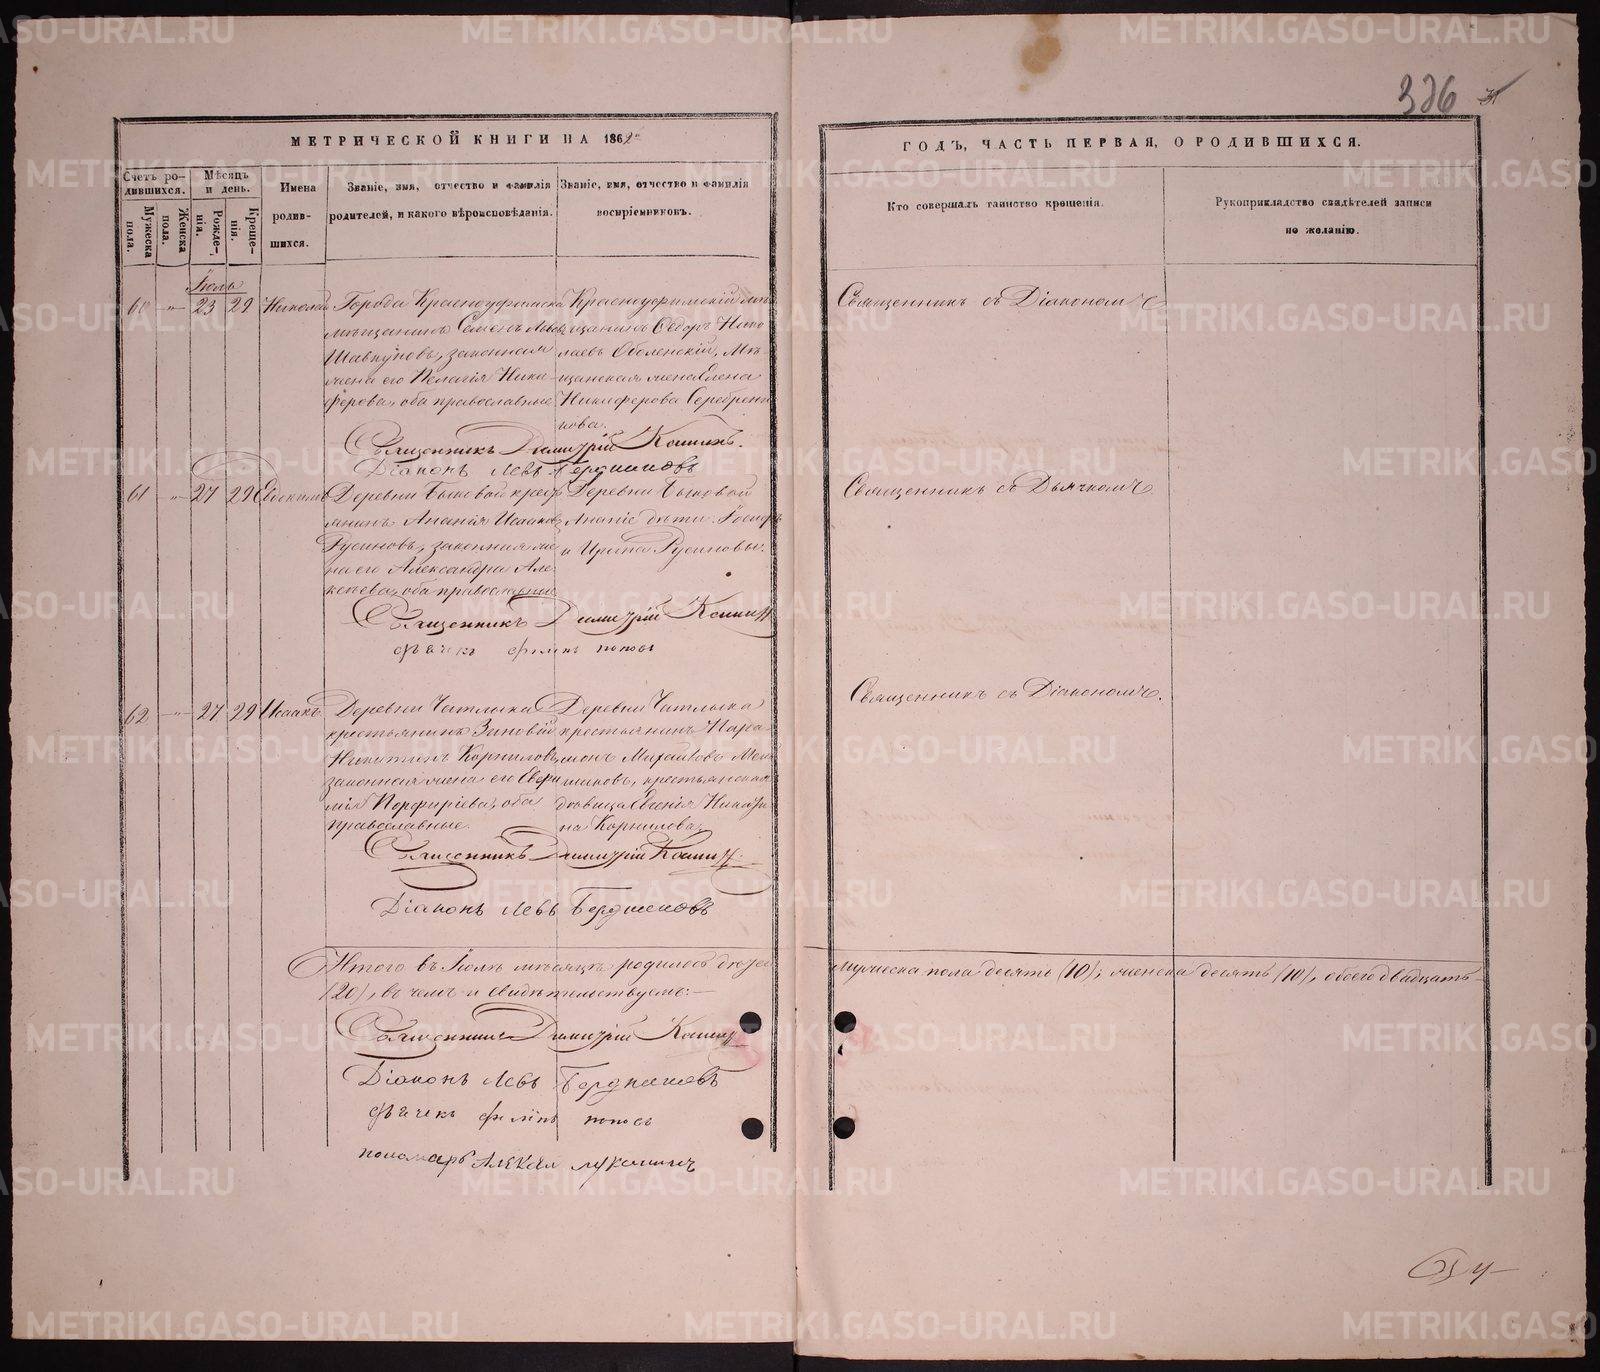 336
МЕТРИЧЕСКОЙ КНИГИ НА 1862
ГОДЪ, ЧАСТЬ ПЕРВАЯ, О РОДИВШИХСЯ.
Счетъ ро-
дившихся.
Мужеска
пола.
Женска
пола.
Мѣсяцъ
и день.
Рожде-
нія.
Креще-
нія.
Имена
родив-
шихся.
Званіе, имя, отчество и фамилія
родителей, и какого вѣроисповѣданія.
Званіе, имя, отчество и фамилія
воспріемниковъ.
Кто совершалъ таинство крещенія.
Рукоприкладство свидѣтелей записи
по желанію.
Іюль
60 " 23 29 Николай
Города Красноуфимска
мѣщанинъ Семенъ Львовъ
Шавкуновъ, законная
жена его Пелагія Ники-
ферова, оба православные
Красноуфимскій мѣ-
щанинъ Ѳедоръ Нико-
лаевъ Оболенскій, Мѣ-
щанская жена Елена
Никиферова Серебрени
кова.
Священникъ съ Діакономъ
Священникъ Димитрій Кашинъ.
Діаконъ Левъ Бердниковъ
61 " 27 29 Евдокимъ
Деревни Быковой кресть
янинъ Ананія Исааковъ
Русиновъ, законная же
на его Александра Але
ксѣева, оба православные
Деревни Быковой
Ананіе дѣти: Іосифъ
и Ирина Русиновы.
Священникъ съ Дьячкомъ
Священникъ Димитрій Кашинъ
дьячекъ Филипъ Поповъ
62 " 27 29 Исаакъ
Деревни Чатлыка
крестьянинъ Зиновій
Никитинъ Корниловъ,
законная жена его Евфи
мія Порфиріева, оба
православные.
Деревни Чатлыка
крестьянинъ Пара
монъ Михайловъ
крестьянская
дѣвица Евгенія Никити
на Корнилова.
Священникъ съ Діакономъ.
Священникъ Димитрій Кашинъ
Діаконъ Левъ Бердниковъ
Итого въ Іюлѣ мѣсяцѣ родилось дѣтей
мужеска пола десять (10), женска десять (10), обоего двадцать
(20), въ чемъ и свидѣтельствуемъ:—
Священникъ Димитрій Кашинъ
Діаконъ Левъ Бердниковъ
дьячекъ Филипъ Поповъ
пономарь
METRIKI.GASO-URAL.RU